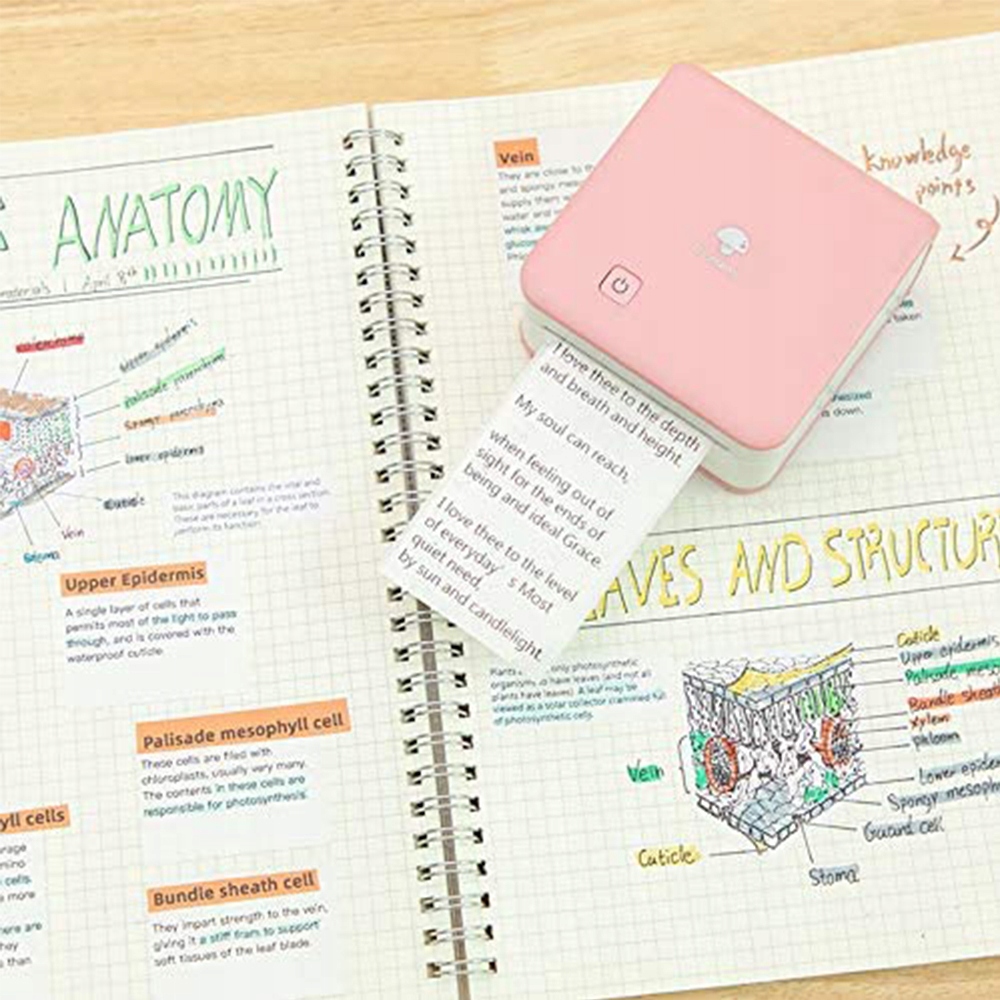 ANATOMY
April 8th
Upper epidermis
palisade parenchyma
Lower epidermis
Cuticle
Vein
Stoma
This diagram contains the vital and
basic parts of a leaf in a cross section.
These are necessary for the leaf to
perform its function.
Upper Epidermis
A single layer of cells that
permits most of the light to pass
through, and is covered with the
waterproof cuticle.
Palisade mesophyll cell
These cells are filed with
chloroplasts, usually very many.
The contents in these cells are
responsible for photosynthesis.
yll cells
cells.
more
Bundle sheath cell
They impart strength to the vein,
giving it a stiff fram to support
soft tissues of the leaf blade.
Vein
They are close to
and spongy
supply them
water and
knowledge
points
taken
is down.
I love thee to the depth
and breath and height.
My soul can reach,
when feeling out of
sight for the ends of
being and ideal Grace.
I love thee to the level
of everyday’s Most
quiet need,
by sun and candlelight.
EAVES AND STRUCTUR
Plants only photosynthetic
organisms to have leaves (and not all
plants have leaves). A leaf may be
viewed as a solar collector crammed full
of photosynthetic cells.
Cuticle
Upper epidermis
Palisade mes
Bundle sheat
Xylem
phloem
Lower epider
Spongy mesoph
Guard cell
Vein
Cuticle
Stoma